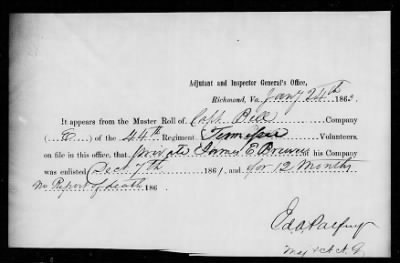 Adjutant and Inspector General's Office,
Richmond, Va. Jany 24th 1863.
It appears from the Muster Roll of Capt. Company
(E) of the 44th Regiment Tennessee Volunteers,
on file in this office, that private James E. his Company
was enlisted Dec 7th 1861, and for 12 Months
No Report of death 186
Maj & A. A. G.